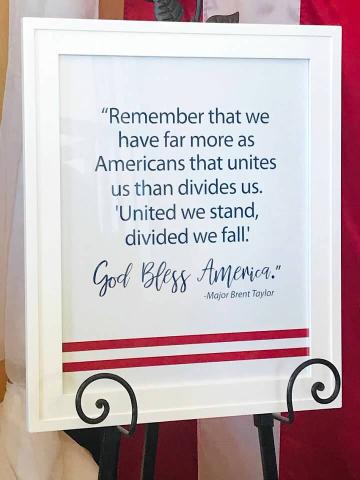 “Remember that we
have far more as
Americans that unites
us than divides us.
'United we stand,
divided we fall.'
God Bless America.”
-Major Brent Taylor